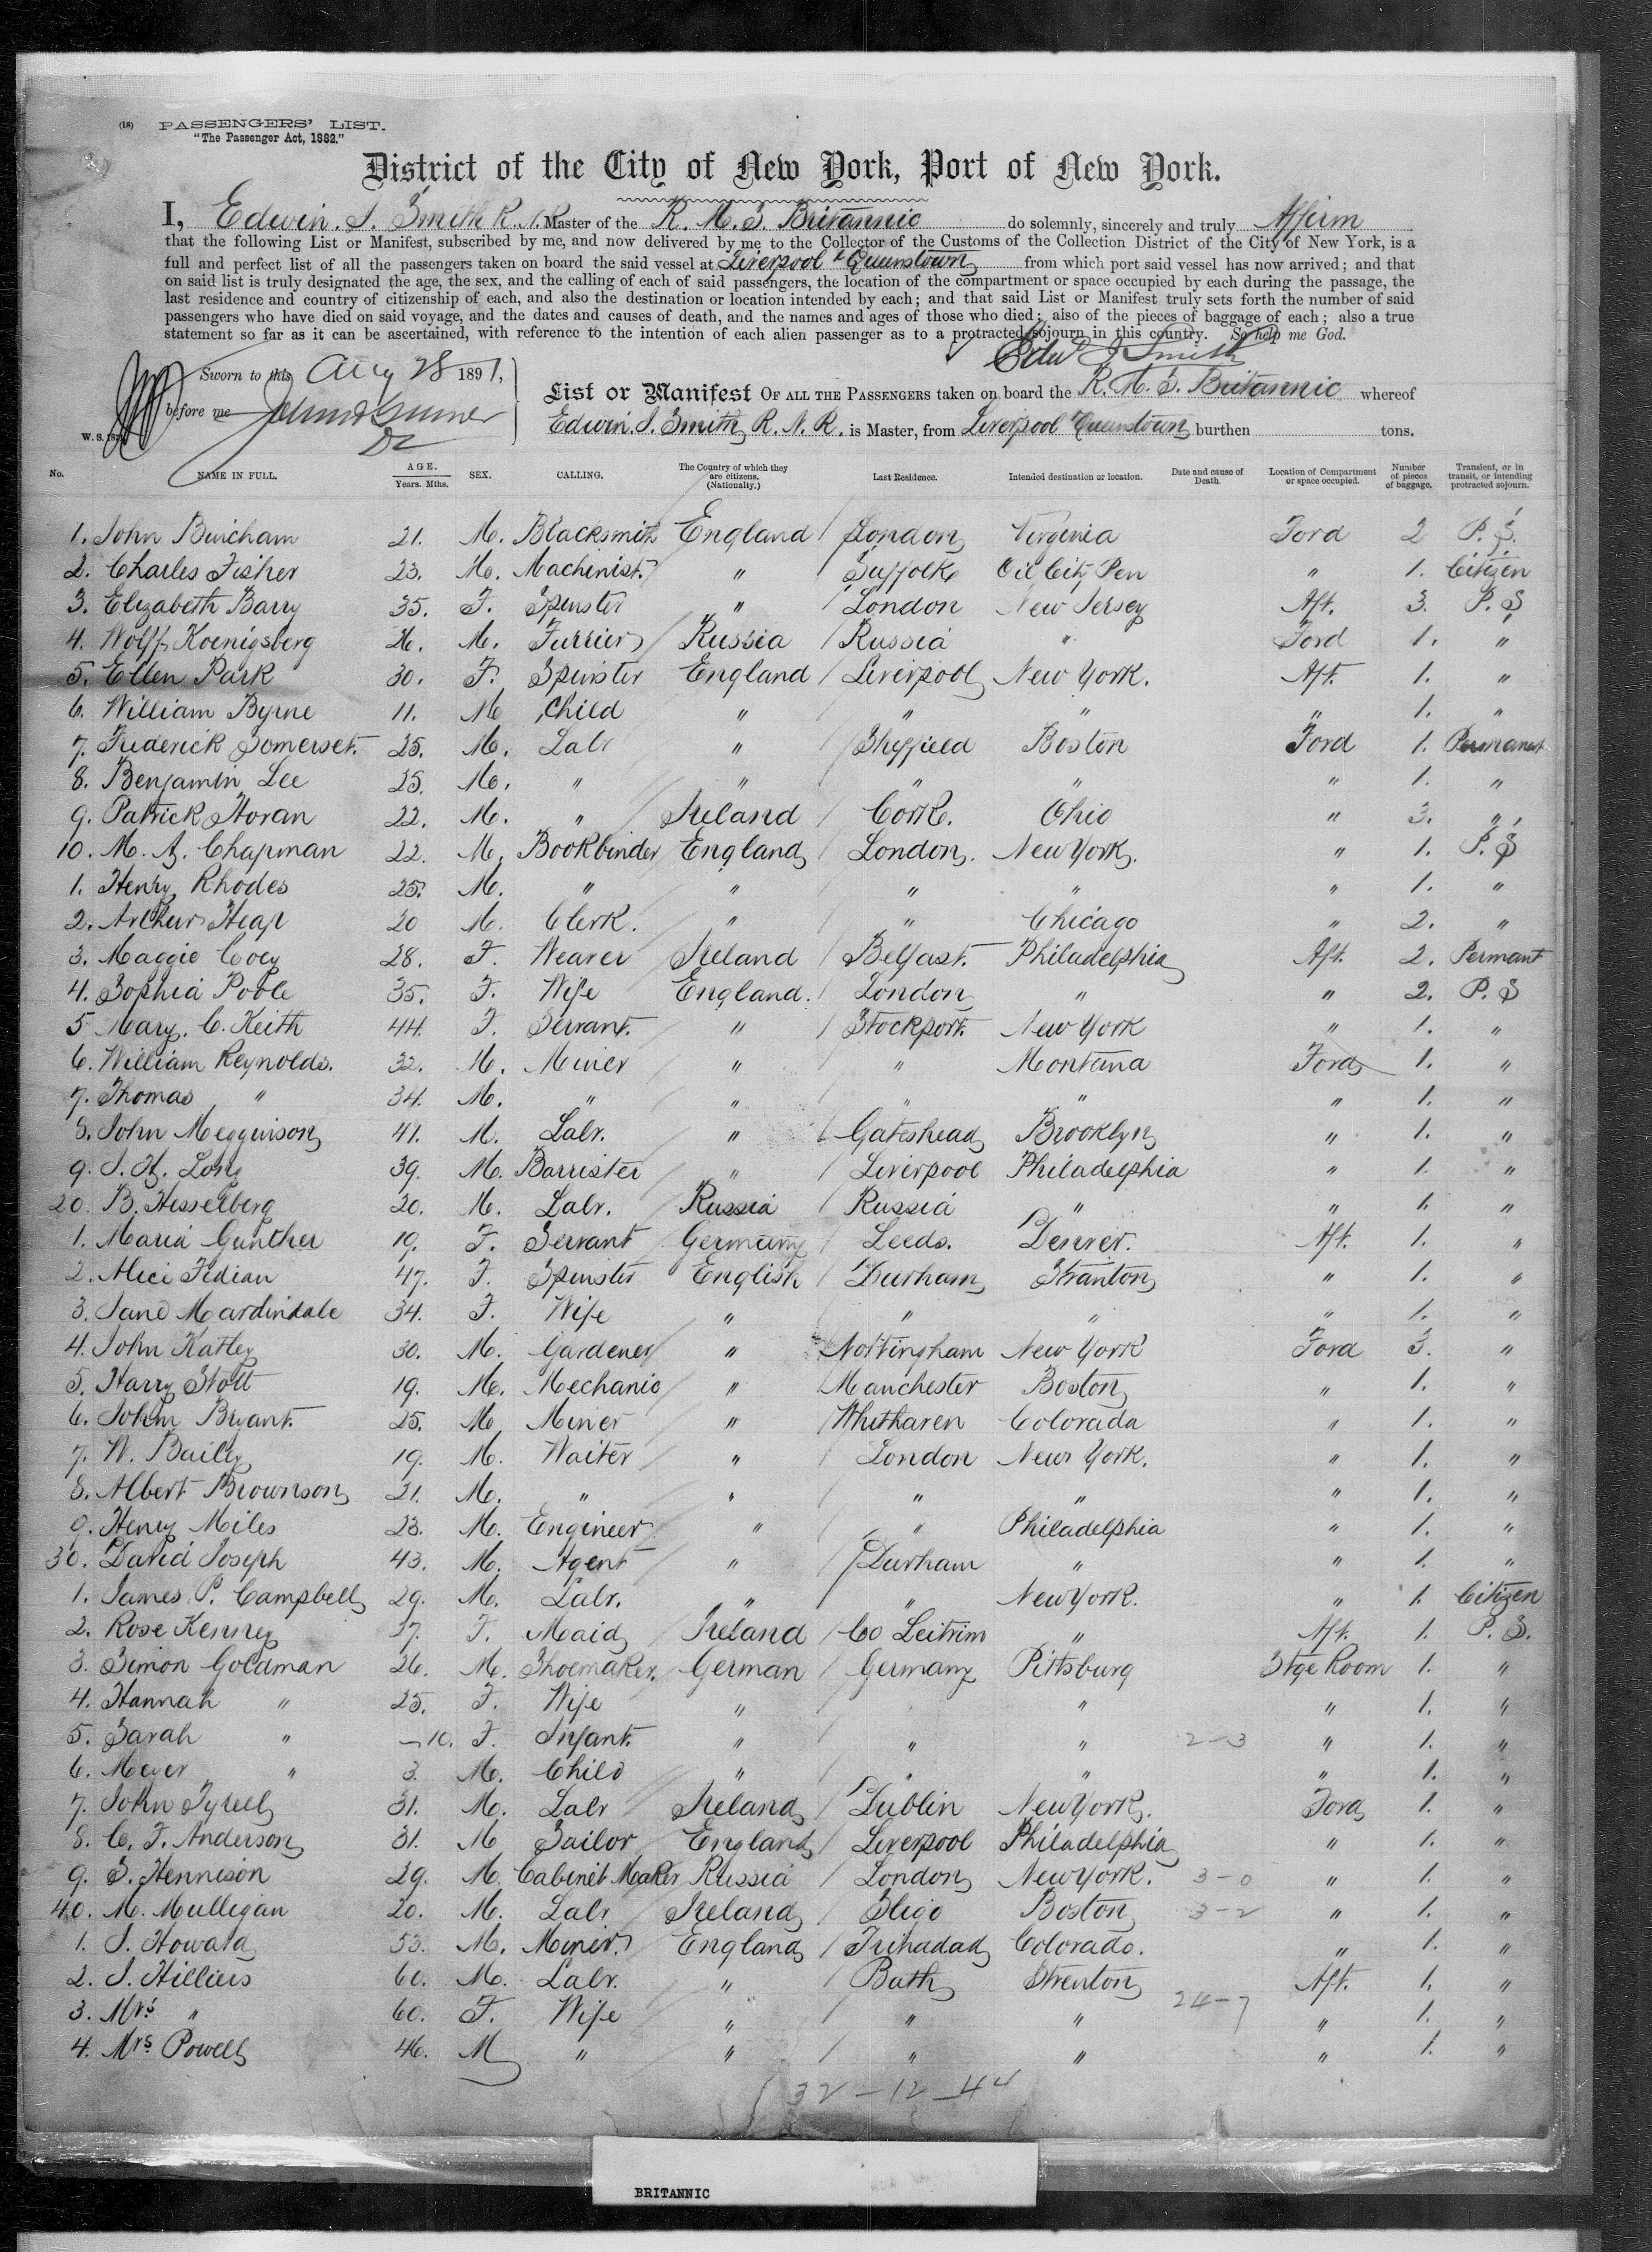 (18) PASSENGERS' LIST.
"The Passenger Act, 1882."
District of the City of New York, Port of New York.
I, Edwin. J. Smith R.N.R. Master of the R. M. S. Britannic do solemnly, sincerely and truly Affirm
that the following List or Manifest, subscribed by me, and now delivered by me to the Collector of the Customs of the Collection District of the City of New York, is a
full and perfect list of all the passengers taken on board the said vessel at Liverpool & Queenstown from which port said vessel has now arrived; and that
on said list is truly designated the age, the sex, and the calling of each of said passengers, the location of the compartment or space occupied by each during the passage, the
last residence and country of citizenship of each, and also the destination or location intended by each; and that said List or Manifest truly sets forth the number of said
passengers who have died on said voyage, and the dates and causes of death, and the names and ages of those who died; also of the pieces of baggage of each; also a true
statement so far as it can be ascertained, with reference to the intention of each alien passenger as to a protracted sojourn in this country. So help me God.
Edw J Smith
Sworn to this Aug 28 1891,
before me
List or Manifest OF ALL THE PASSENGERS taken on board the R. M. S. Britannic whereof
Edwin. J. Smith, R. N. R. is Master, from Liverpool & Queenstown burthen tons.
No. NAME IN FULL. AGE. Years. Mths. SEX. CALLING. The Country of which they are citizens. (Nationalty.) Last Residence. Intended destination or location. Date and cause of Death. Location of Compartment or space occupied. Number of pieces of baggage. Transient, or in transit, or intending protracted sojourn.
1. John Burcham 21. M. Blacksmith England London Virginia Ford 2 P. S.
2. Charles Fisher 23. M. Machinist. " Suffolk Oil City Pen " 1. Citizen
3. Elizabeth Barry 35. F. Spinster " London New Jersey Aft. 3. P. S
4. Wolff Koenigsberg 26. M. Furrier Russia Russia " Ford 1. "
5. Ellen Park 30. F. Spinster England Liverpool New York. Aft. 1. "
6. William Byrne 11. M Child " " " " 1. "
7. Frederick Somerset. 25. M. Labr " Sheffield Boston Ford 1. Permanent
8. Benjamin Lee 25. M. " " " " " 1. "
9. Patrick Horan 22. M. " Ireland Cork. Ohio " 3. "
10. M. A. Chapman 22. M. Bookbinder England London. New York. " 1. P. S
1. Henry Rhodes 25. M. " " " " " 1. "
2. Arthur Heap 20 M. Clerk. " " Chicago " 2. "
3. Maggie Coey 28. F. Weaver Ireland Belfast. Philadelphia Aft. 2. Permant
4. Sophia Poole 35. F. Wife England. London " " 2. P. S
5 Mary. C. Keith 44. F. Servant. " Stockport. New York " 1. "
6. William Reynolds. 32. M. Miner " " Montana Ford 1. "
7. Thomas " 34. M. " " " " " 1. "
8. John Megginson 41. M. Labr. " Gateshead Brooklyn " 1. "
9. J. H. Long 39. M. Barrister " Liverpool Philadelphia " 1. "
20. B. Hesselberg 20. M. Labr. Russia Russia " " 1. "
1. Maria Gunther 19. F. Servant Germany Leeds. Denver. Aft. 1. "
2. Alice Fidian 47. F. Spinster English Durham Stranton " 1. "
3. Jane Mardindale 34. F. Wife " " " " 1. "
4. John Katley 30. M. Gardener " Nottingham New York Ford 3. "
5. Harry Stott 19. M. Mechanic " Manchester Boston " 1. "
6. John Bryant. 25. M Miner " Whithaven Colorada " 1. "
7. W. Baily 19. M. Waiter " London New York. " 1. "
8. Albert Brownson 21. M. " " " " " 1. "
9. Henry Miles 23. M. Engineer " " Philadelphia " 1. "
30. David Joseph 43. M. Agent " Durham " " 1. "
1. James. P. Campbell 29. M. Labr. " " New York. " 1. Citizen
2. Rose Kenney 37. F. Maid Ireland Co Leitrim " Aft. 1. P. S.
3. Simon Goldman 26. M. Shoemaker. German Germany Pittsburg Stge Room 1. "
4. Hannah " 25. F. Wife " " " 1. "
5. Sarah " 10. F. Infant. " " " 2-3 " 1. "
6. Meyer " 3. M. Child " " " " 1. "
7. John Tyrell 31. M. Labr Ireland Dublin New York. Ford 1. "
8. C. F. Anderson 31. M Sailor England Liverpool Philadelphia " 1. "
9. S. Hennison 29. M. Cabinet Maker Russia London New York. 3-0 " 1. "
40. M. Mulligan 20. M. Labr Ireland Sligo Boston 3-2 " 1. "
1. J. Howard 53. M. Miner England Trihadad Colorado. " 1. "
2. J. Hilliers 60. M. Labr. " Bath Strenton Aft. 1. "
3. Mrs " 60. F. Wife " " " 24-7 " 1. "
4. Mrs. Powell 46. M " " " " " 1. "
32-12-44
BRITANNIC